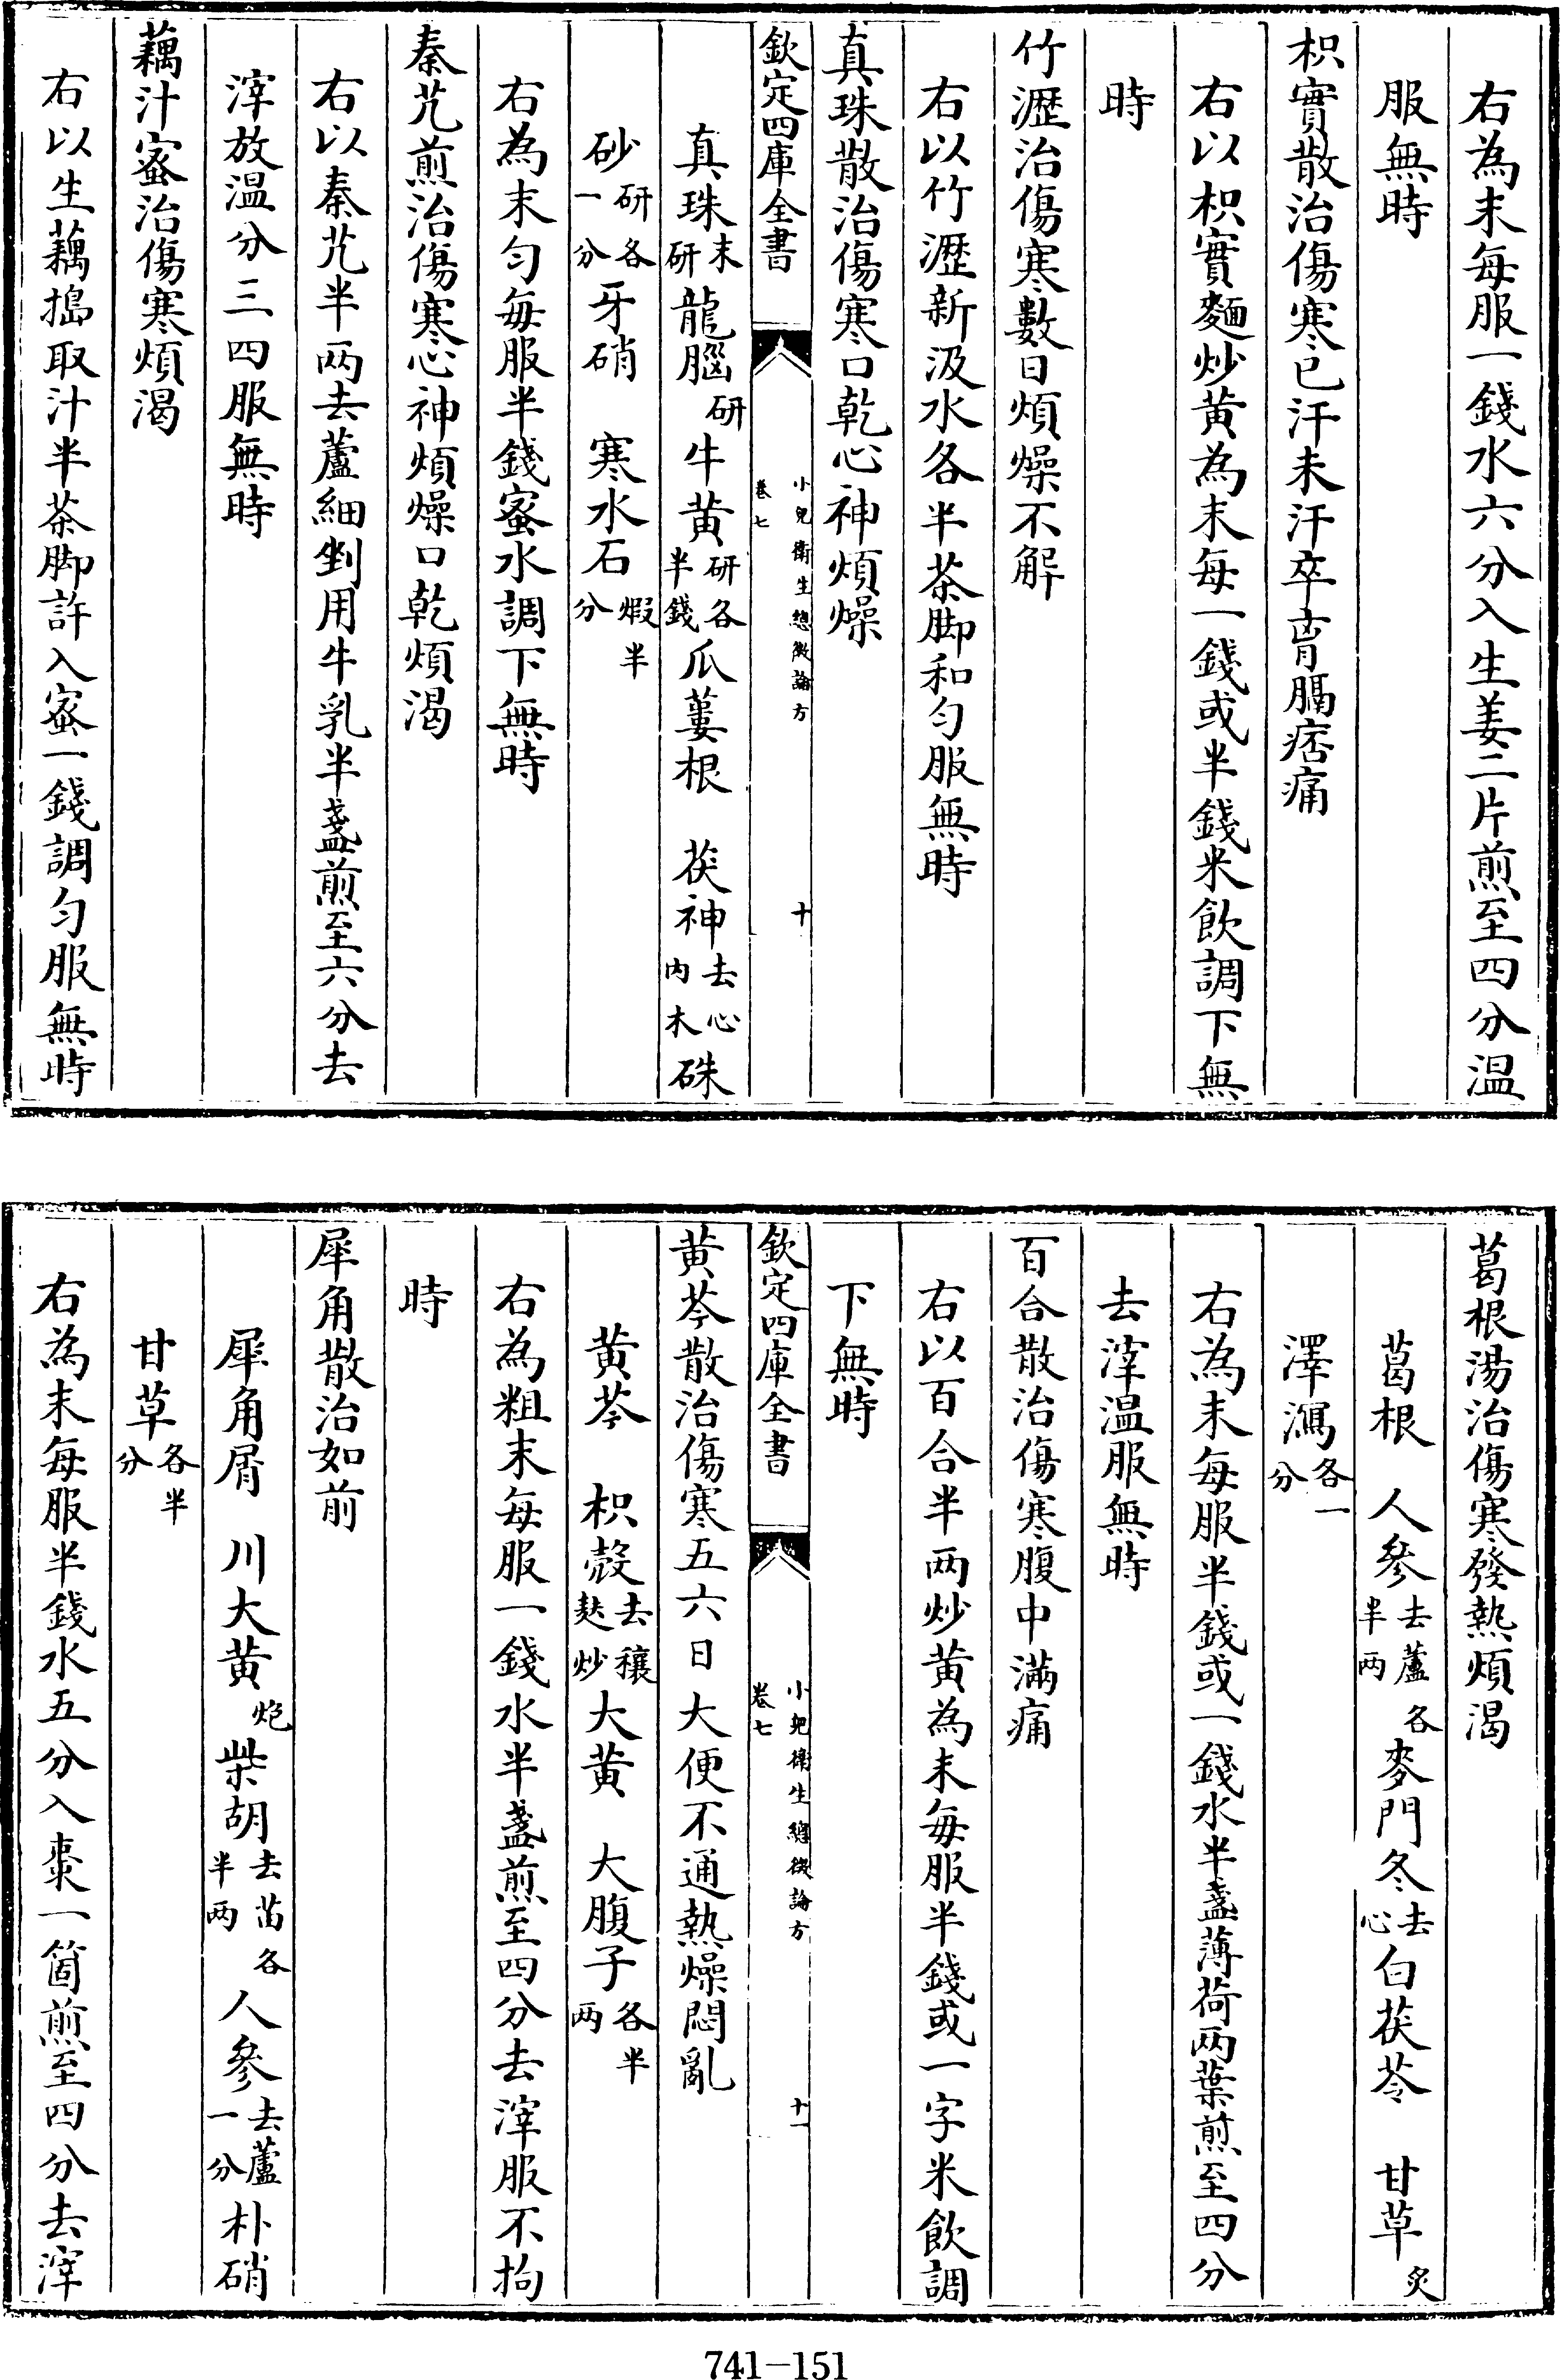 右為末每服一錢水六分入生姜二片煎至四分温
服無時
枳實散治傷寒已汗未汗卒胷膈痞痛
右以枳實麵炒黄為末每一錢或半錢米飲調下無
時
竹瀝治傷寒數日煩燥不解
右以竹瀝新汲水各半茶脚和匀服無時
真珠散治傷寒口乾心神煩燥
欽定四庫全書 小兒衛生總微論方 卷七 十
真珠末研龍腦研牛黄研各半錢瓜蔞根 茯神去心内木硃
砂研各一分牙硝 寒水石煆半分
右為末匀每服半錢蜜水調下無時
秦艽煎治傷寒心神煩燥口乾煩渴
右以秦艽半两去蘆細剉用牛乳半盞煎至六分去
滓放温分三四服無時
藕汁蜜治傷寒煩渴
右以生藕搗取汁半茶脚許入蜜一錢調匀服無時
葛根湯治傷寒發熱煩渴
葛根 人參去蘆各半两麥門冬去心白茯苓 甘草炙
澤瀉各一分
右為末每服半錢或一錢水半盞薄荷两葉煎至四分
去滓温服無時
百合散治傷寒腹中滿痛
右以百合半两炒黄為末每服半錢或一字米飲調
下無時
欽定四庫全書 小兒衛生總微論方 卷七 十一
黄芩散治傷寒五六日大便不通熱燥悶亂
黄芩 枳殼去穰麸炒大黄 大腹子各半两
右為粗末每服一錢水半盞煎至四分去滓服不拘
時
犀角散治如前
犀角屑 川大黄炮柴胡去苗各半两人參去蘆一分朴硝
甘草各半分
右為末每服半錢水五分入棗一箇煎至四分去滓
741-151